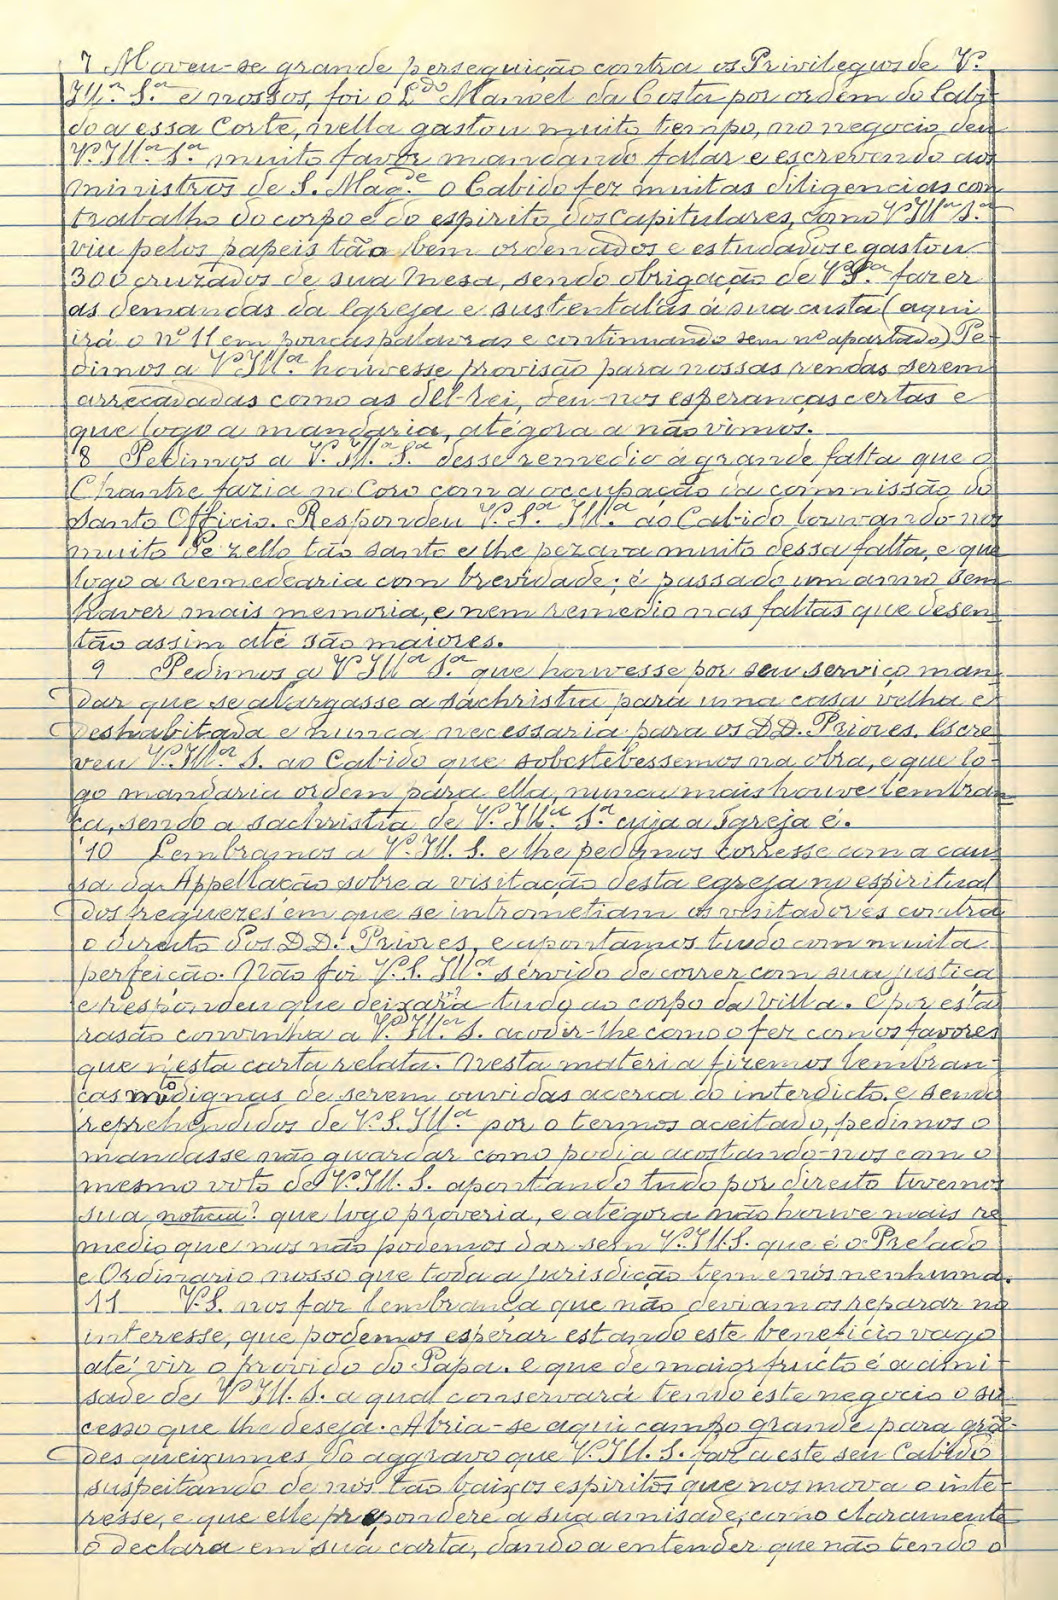 7 Moveu-se grande perseguição contra os Privilegios de V.
Ill.ª S.ª e nossos, foi o L.do Manoel da Costa por ordem do Cabi-
do a essa Corte, n'ella gastou muito tempo, no negocio deu
V. Ill.ª S.ª muito favor mandando falar e escrevendo aos
ministros de S. Mag.de o Cabido fez muitas diligencias com
trabalho do corpo e do espirito dos capitulares, como V. Ill.ª S.ª
viu pelos papeis tão bem ordenados e estudados e gastou
300 cruzados de sua Mesa, sendo obrigação de V. S.ª fazer
as demandas da Igreja e sustental-as á sua custa (aqui
irá o nº 11 em poucas palavras e continuando sem nº apartado) Pe-
dimos a V. Ill.ª houvesse provisão para nossas rendas serem
arrecadadas como as d'el-rei, deu-nos esperanças certas e
que logo a mandaria, atégora a não vimos.
8 Pedimos a V. Ill.ª S.ª desse remedio á grande falta que o
Chantre fazia no Coro com a occupação da commissão do
Santo Officio. Respondeu V. S.ª Ill.ª ao Cabido louvando-nos
muito de zello tão santo e lhe pezava muito dessa falta, e que
logo a remedearia com brevidade; é passado um anno sem
haver mais memoria, e nem remedio nas faltas que desen-
tão assim até são maiores.
9 Pedimos a V. Ill.ª S.ª que houvesse por seu serviço man-
dar que se alargasse a sachristia para uma casa velha e
deshabitada e nunca necessaria para os DD. Priores. Escre-
veu V. Ill.ª S. ao Cabido que sobestebessemos na obra, e que lo-
go mandaria ordem para ella, nunca mais houve lembran-
ça, sendo a sachristia de V. Ill.ª S.ª cuja a Igreja é.
10 Lembramos a V. Ill. S. e lhe pedimos corresse com a cau-
sa da Appellação sobre a visitação desta egreja no espiritual
dos freguezes em que se intrometiam os visitadores contra
o direito dos DD. Priores, e apontamos tudo com muita
perfeição. Não foi V. S. Ill.ª servido de correr com sua justiça
e respondeu que deixara? tudo ao corpo da Villa. E por esta
rasão convinha a V. Ill.ª S. acodir-lhe como o fez com os favores
que n'esta carta relata. Nesta materia fizemos lembran-
ças mto dignas de serem ouvidas acerca do interdicto. e sendo
reprehendidos de V. S. Ill.ª por o termos aceitado, pedimos o
mandasse não guardar como podia acostando-nos com o
mesmo voto de V. Ill. S. apontando tudo por direito tivemos
sua noticia? que logo proveria, e atégora não houve mais re-
medio que nos não podemos dar sem V. Ill. S. que é o Prelado
e Ordinario nosso que toda a jurisdicção tem e nós nenhuma.
11 V. S. nos faz lembrança que não deviamos reparar no
interesse, que podemos esperar estando este beneficio vago
até vir o provido do Papa. e que de maior fructo é a ami-
sade de V. Ill. S. a qual conservará tendo este negocio o su-
cesso que lhe deseja. Abria-se aqui campo grande para gran-
des queixumes do aggravo que V. Ill. S. faz a este seu Cabido
suspeitando de nós tão baixos espiritos que nos mova o inte-
resse, e que elle prepondere a sua amisade, como claramente
o declara em sua carta, dando a entender que não tendo o